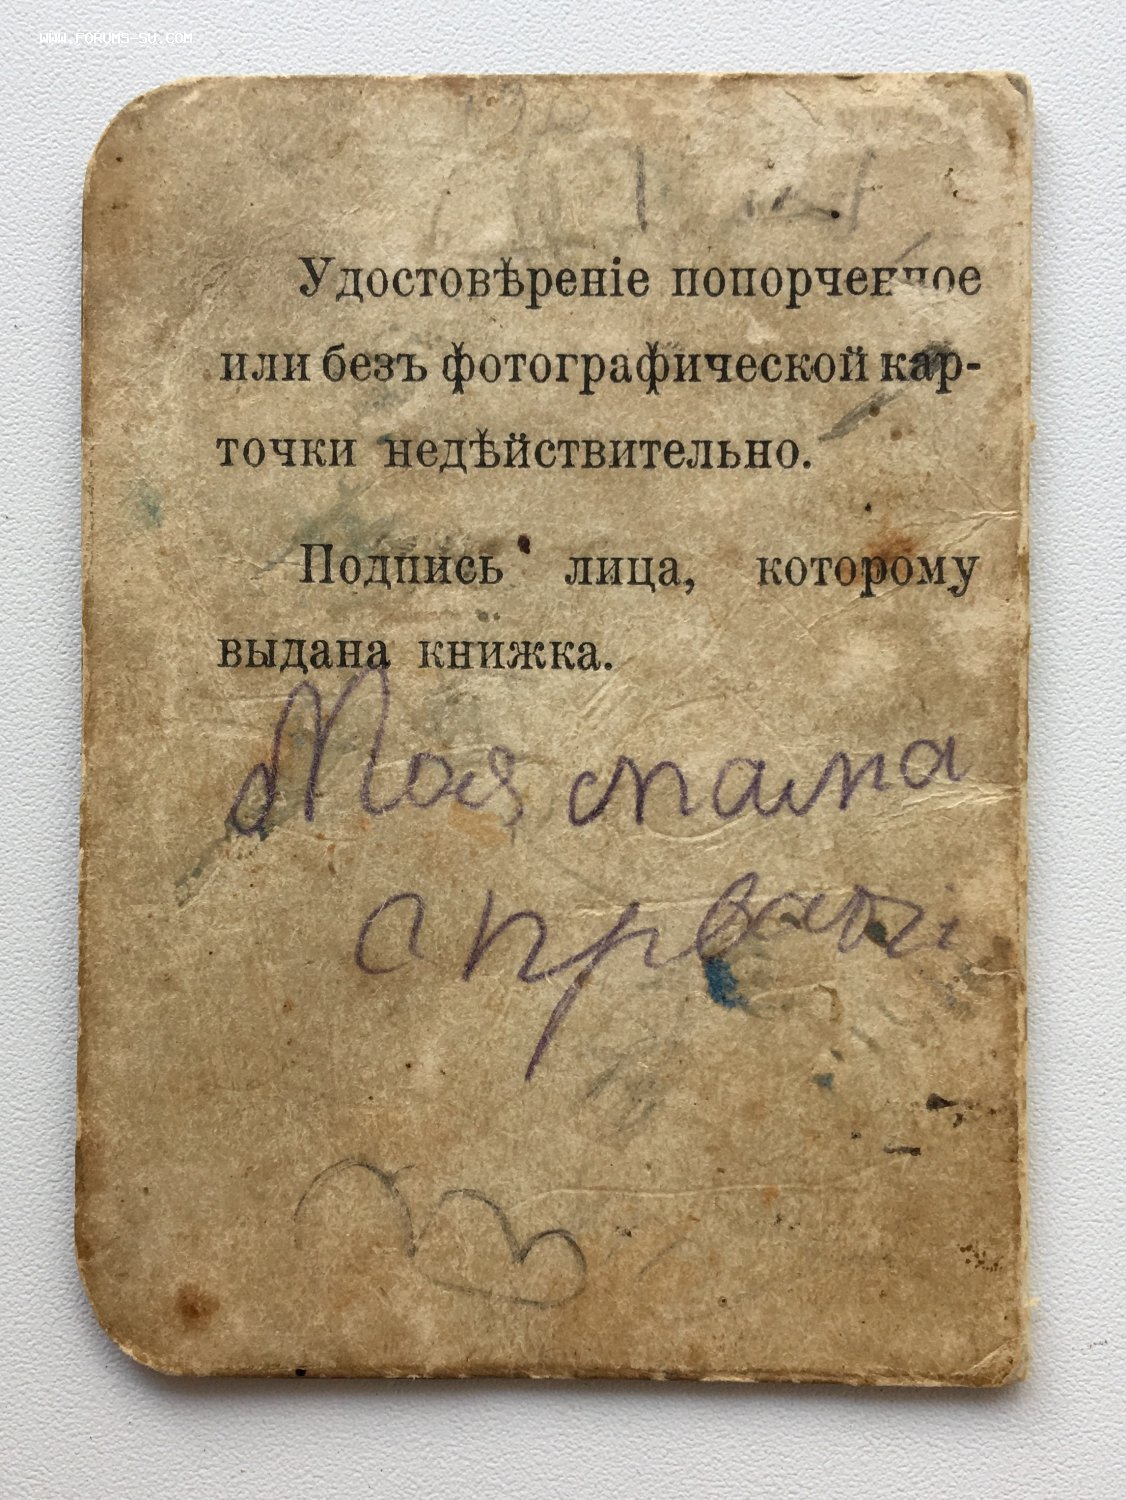 WWW.FORUMS-SU.COM
Удостовѣреніе попорченное
или безъ фотографической кар-
точки недѣйствительно.
Подпись лица, которому
выдана книжка.
Моя мама